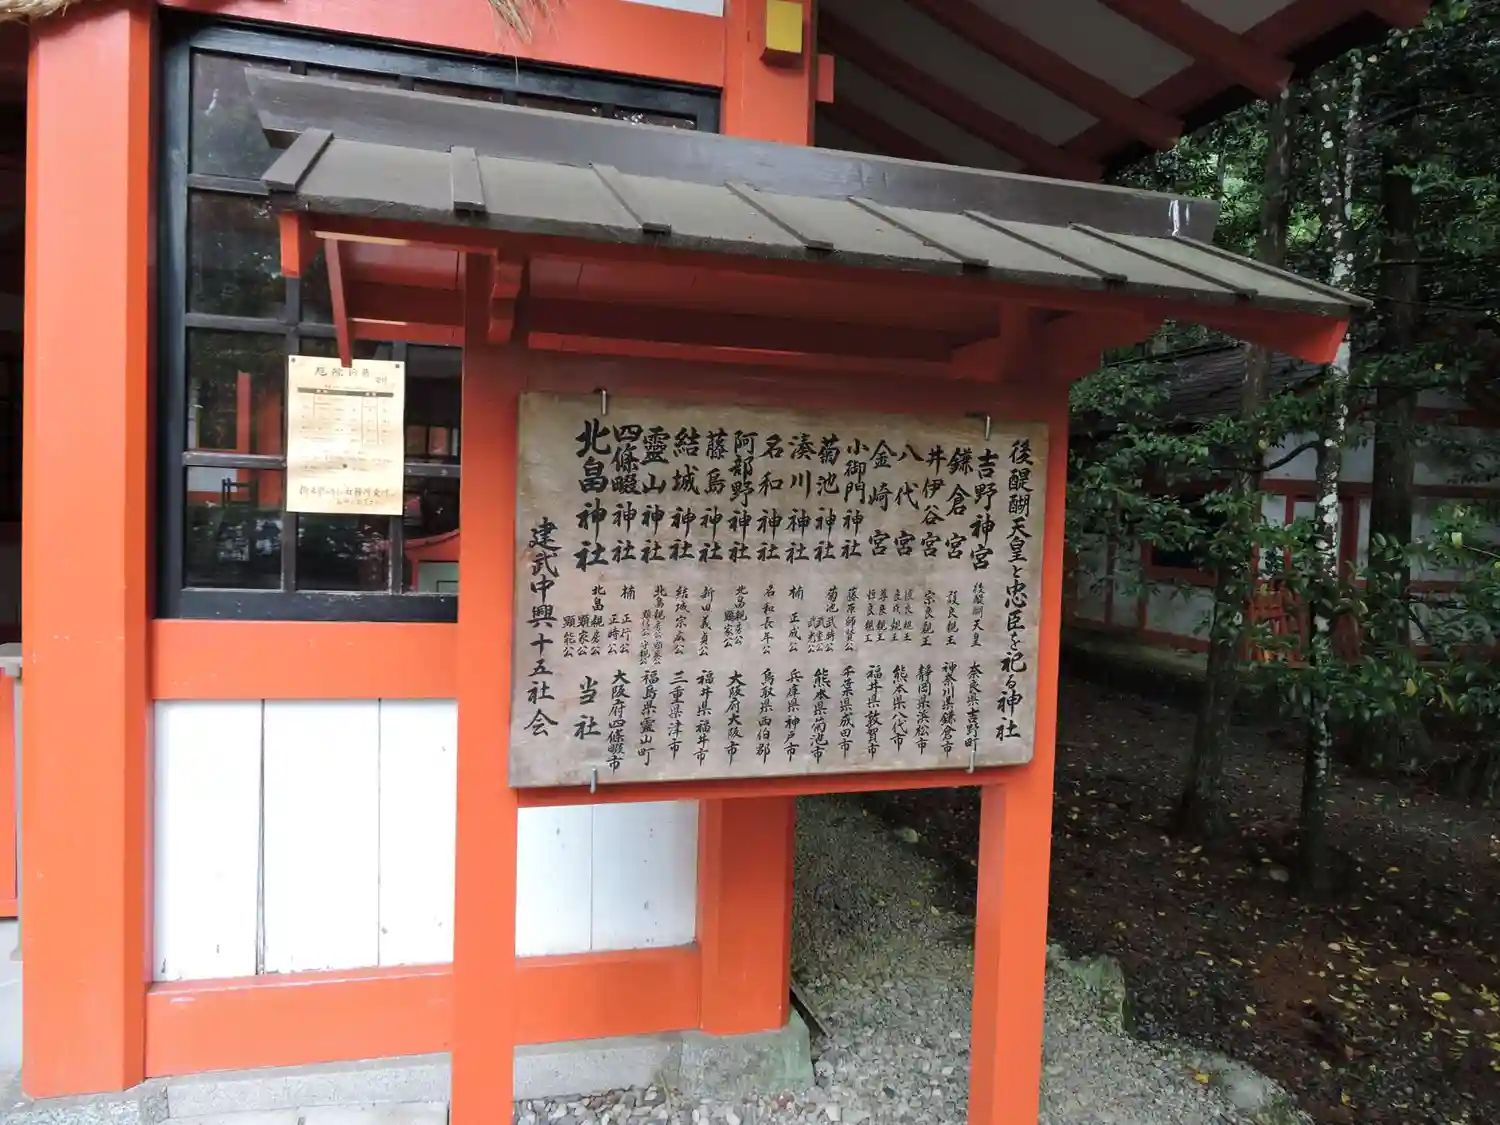 後醍醐天皇と忠臣を祀る神社
吉野神宮 後醍醐天皇 奈良県吉野町
鎌倉宮 護良親王 神奈川県鎌倉市
井伊谷宮 宗良親王 静岡県浜松市
八代宮 懐良親王 良成親王 熊本県八代市
金崎宮 尊良親王 恒良親王 福井県敦賀市
小御門神社 藤原師賢公 千葉県成田市
菊池神社 菊池武時公 武重公 武光公 熊本県菊池市
湊川神社 楠正成公 兵庫県神戸市
名和神社 名和長年公 鳥取県西伯郡
阿部野神社 北畠親房公 顕家公 大阪府大阪市
藤島神社 新田義貞公 福井県福井市
結城神社 結城宗広公 三重県津市
靈山神社 北畠親房公 顕家公 顕信公 守親公 福島県霊山町
四條畷神社 楠正行公 正時公 大阪府四條畷市
北畠神社 北畠親房公 顕家公 顕能公 当社
建武中興十五社会
厄除祈祷